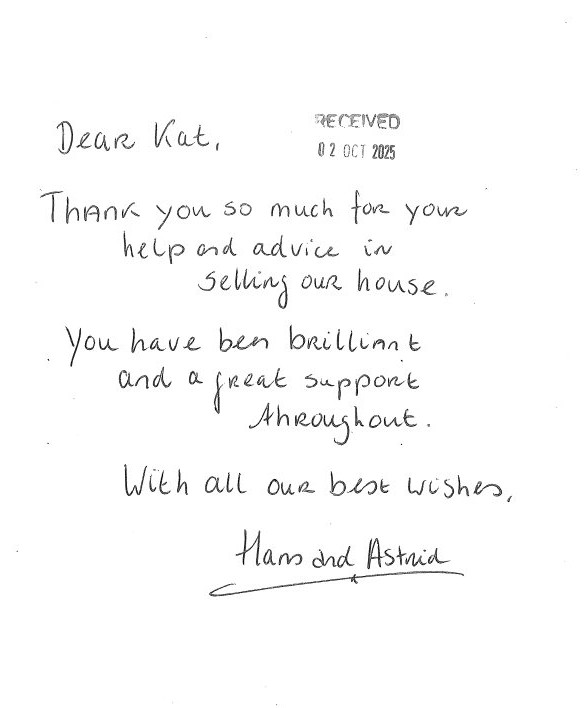 Dear Kat,
RECEIVED
02 OCT 2025
Thank you so much for your
help and advice in
selling our house.
You have been brilliant
and a great support
throughout.
With all our best wishes,
Hans and Astrid